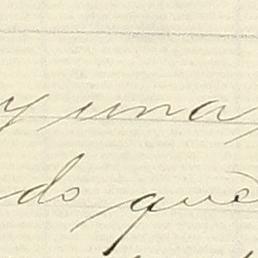 y una
do què